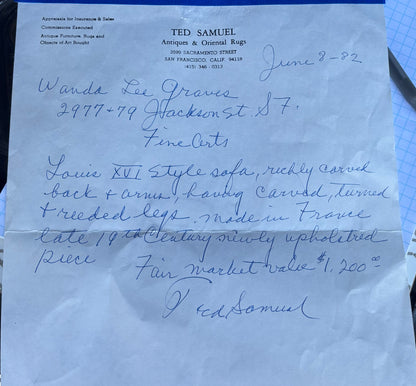 Appraisals for Insurance & Sales
Commissions Executed
Antique Furniture, Rugs and
Objects of Art Bought
TED SAMUEL
Antiques & Oriental Rugs
3590 SACRAMENTO STREET
SAN FRANCISCO, CALIF. 94118
(415) 346-0313
June 8-82
Wanda Lee Graves
2977+79 Jackson St. S.F.
Fine Arts
Louis XVI style sofa, richly carved
back + arms, having carved, turned
+ reeded legs. made in France
late 19th Century newly upholstred
piece
Fair market value $1,200.00
Ted Samuel